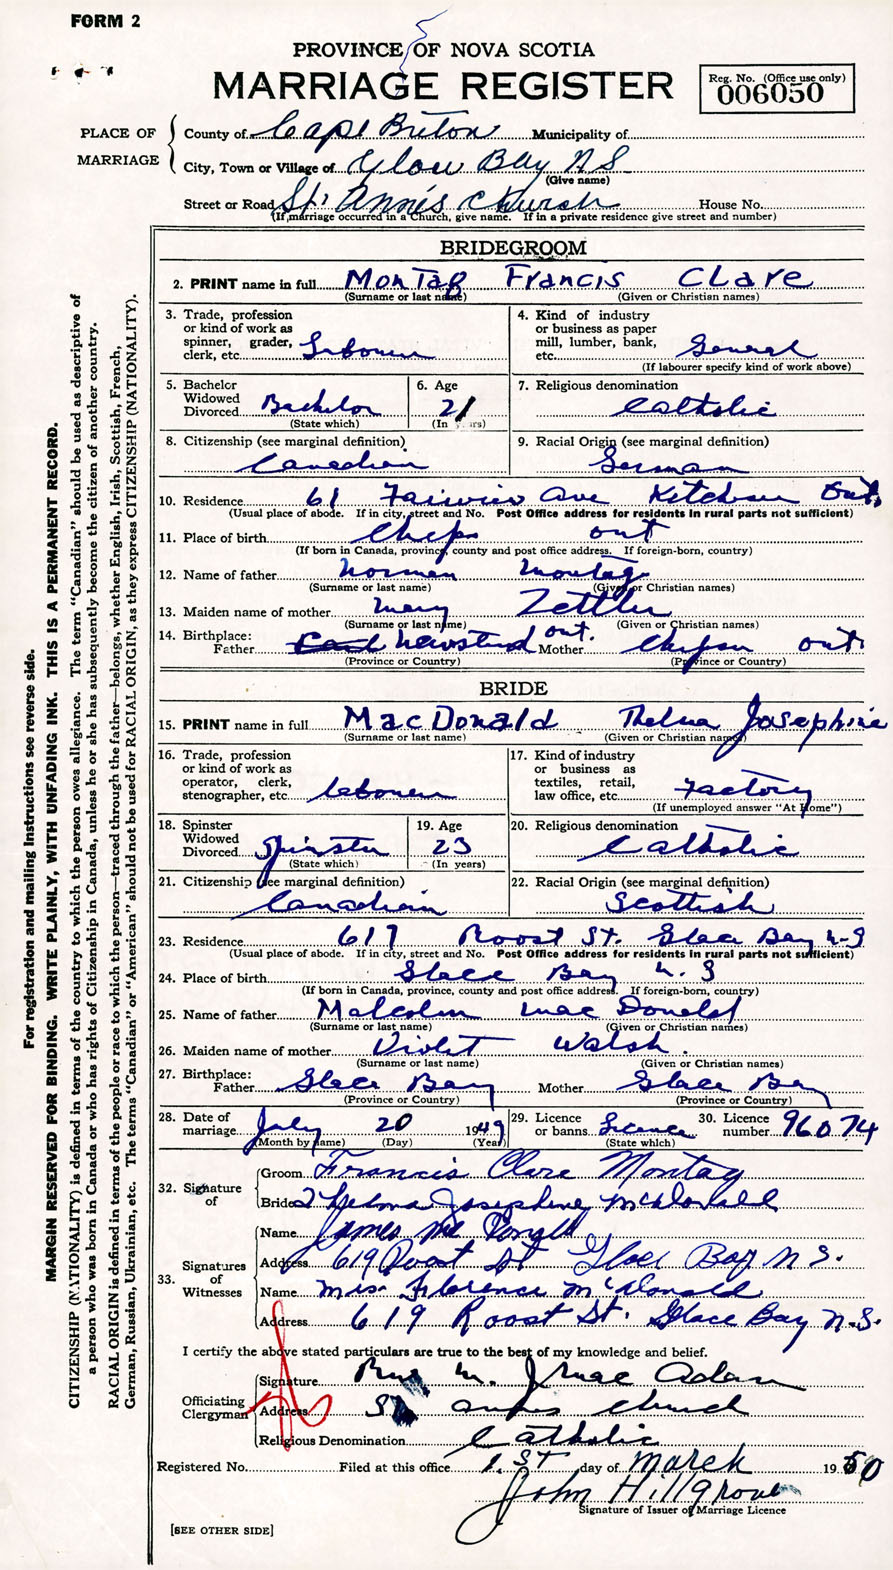 FORM 2
PROVINCE OF NOVA SCOTIA
MARRIAGE REGISTER
Reg. No. (Office use only)
006050
PLACE OF MARRIAGE
County of Cape Briton Municipality of
City, Town or Village of Glace Bay N S
(Give name)
Street or Road St. Anne's Church House No.
(If marriage occurred in a Church, give name. If in a private residence give street and number)
BRIDEGROOM
2. PRINT name in full Montag Francis Clare
(Surname or last name) (Given or Christian names)
3. Trade, profession or kind of work as spinner, grader, clerk, etc. Labourer
4. Kind of industry or business as paper mill, lumber, bank, etc. General
(If labourer specify kind of work above)
5. Bachelor Widowed Divorced Bachelor
(State which)
6. Age 21
(In years)
7. Religious denomination Catholic
8. Citizenship (see marginal definition) Canadian
9. Racial Origin (see marginal definition) German
10. Residence 61 Fairview Ave Kitchener Ont.
(Usual place of abode. If in city, street and No. Post Office address for residents in rural parts not sufficient)
11. Place of birth Cheps ont
(If born in Canada, province, county and post office address. If foreign-born, country)
12. Name of father Norman Montag
(Surname or last name) (Given or Christian names)
13. Maiden name of mother Mary Zettler
(Surname or last name) (Given or Christian names)
14. Birthplace: Father Newstead ont. Mother Chepson ont
(Province or Country) (Province or Country)
BRIDE
15. PRINT name in full MacDonald Thelma Josephine
(Surname or last name) (Given or Christian names)
16. Trade, profession or kind of work as operator, clerk, stenographer, etc. labourer
17. Kind of industry or business as textiles, retail, law office, etc. Factory
(If unemployed answer "At Home")
18. Spinster Widowed Divorced Spinster
(State which)
19. Age 23
(In years)
20. Religious denomination Catholic
21. Citizenship (see marginal definition) Canadian
22. Racial Origin (see marginal definition) Scottish
23. Residence 617 Roost St. Glace Bay N-S
(Usual place of abode. If in city, street and No. Post Office address for residents in rural parts not sufficient)
24. Place of birth Glace Bay N. S
(If born in Canada, province, county and post office address. If foreign-born, country)
25. Name of father Malcolm MacDonald
(Surname or last name) (Given or Christian names)
26. Maiden name of mother Violet Walsh.
(Surname or last name) (Given or Christian names)
27. Birthplace: Father Glace Bay Mother Glace Bay
(Province or Country) (Province or Country)
28. Date of marriage July 20 1949
(Month by name) (Day) (Year)
29. Licence or banns Licence
(State which)
30. Licence number 96074
32. Signature of
Groom Francis Clare Montag
Bride Thelma Josephine McDonald
33. Signatures of Witnesses
Name James McDonald
Address 619 Roost St Glace Bay N S.
Name Miss Florence McDonald
Address 619 Roost St. Glace Bay N.S.
I certify the above stated particulars are true to the best of my knowledge and belief.
Officiating Clergyman
Signature M. J. MacAdam
Address St annes church
Religious Denomination Catholic
Registered No. Filed at this office 1.st day of March 1950
John Hillgrove
Signature of Issuer of Marriage Licence
[SEE OTHER SIDE]
For registration and mailing instructions see reverse side.
MARGIN RESERVED FOR BINDING. WRITE PLAINLY, WITH UNFADING INK. THIS IS A PERMANENT RECORD.
CITIZENSHIP (NATIONALITY) is defined in terms of the country to which the person owes allegiance. The term "Canadian" should be used as descriptive of
a person who was born in Canada or who has rights of Citizenship in Canada, unless he or she has subsequently become the citizen of another country.
RACIAL ORIGIN is defined in terms of the people or race to which the person—traced through the father—belongs, whether English, Irish, Scottish, French,
German, Russian, Ukrainian, etc. The terms "Canadian" or "American" should not be used for RACIAL ORIGIN, as they express CITIZENSHIP (NATIONALITY).